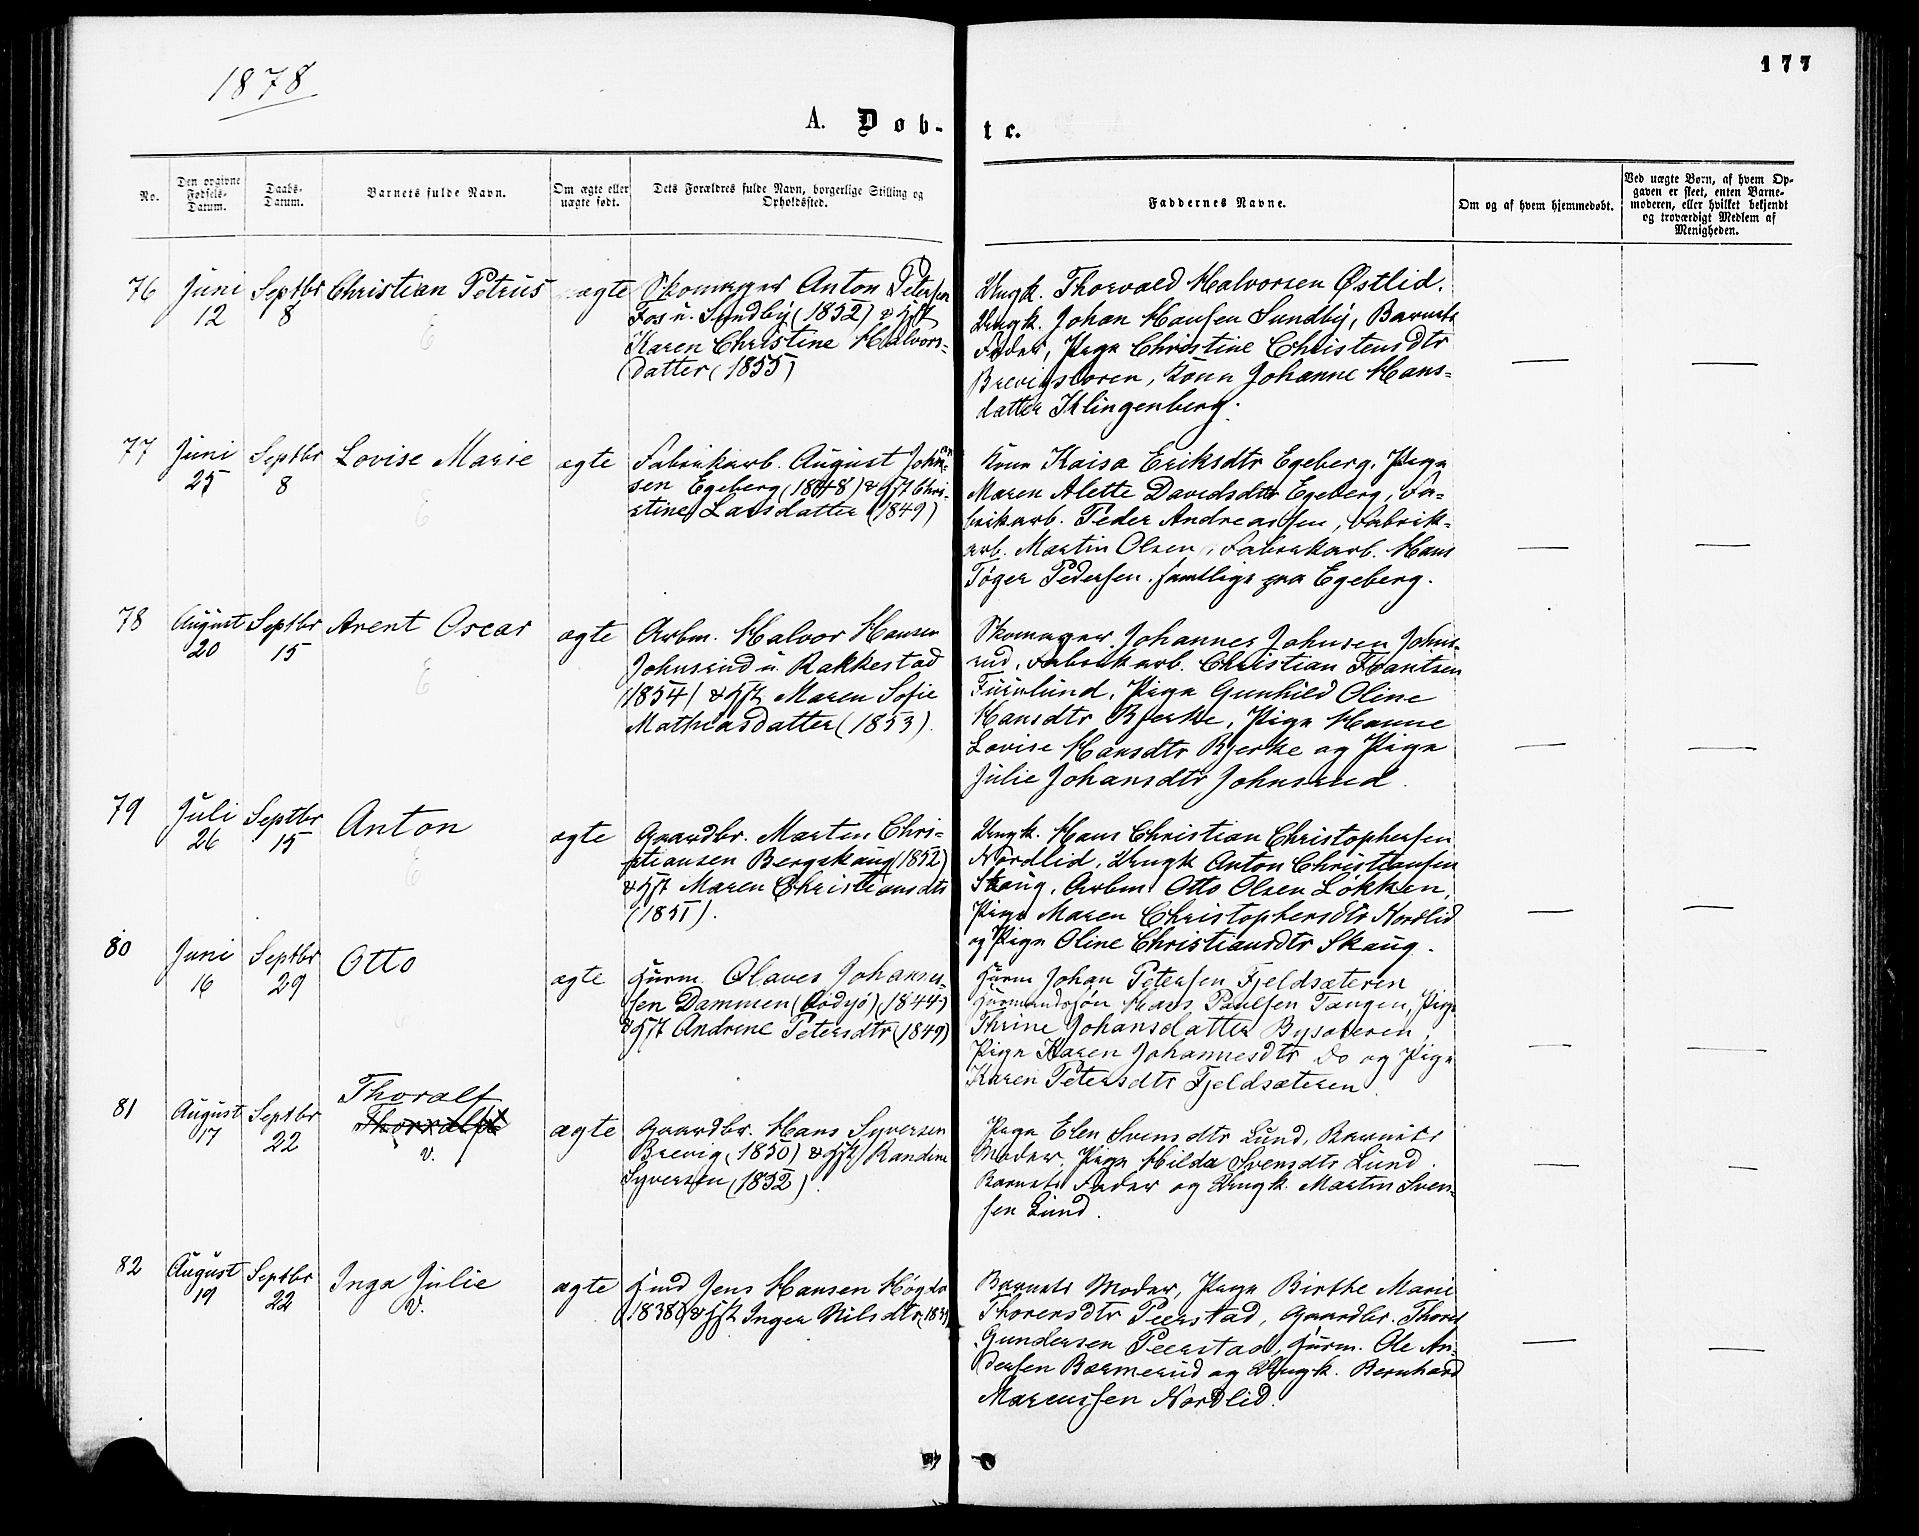 1878
177
A. Døb-
te.
No.
Den opgivne
Fødsels-
Datum.
Daabs-
Datum.
Barnets fulde Navn.
Om ægte eller
uægte født.
Dets Forældres fulde Navn, borgerlige Stilling og
Opholdssted.
Faddernes Navne.
Om og af hvem hjemmedøbt.
Ved uægte Børn, af hvem Op-
gaven er skeet, enten Barne-
moderen, eller hvilket bekjendt
og troværdigt Medlem af
Menigheden.
76
Juni
12
Septbr
8
Christian Petrus
E
ægte
Skomager Anton Petersen
Fos u. Sundby (1852) & Hst
Karen Christine Halvors-
datter (1855)
Ungk. Thorvald Halvorsen Østlid.
Ungk. Johan Hansen Sundby, Barnets
Fader, Pige Christine Christensdtr
Brevigsloren, Kone Johanne Hans-
datter Klingenberg.
77
Juni
25
Septbr
8
Lovise Marie
E
ægte
Fabrikarb. August Johan-
sen Egeberg (1848) & Hst Chri-
stine Larsdatter (1849)
Kone Kaisa Eriksdtr Egeberg, Pige
Maren Alette Davidsdtr Egeberg, Fa-
brikarb. Peder Andreassen, Fabrik-
arb. Martin Olsen, Fabrikarb. Hans
Tøger Pedersen. samtlige fra Egeberg.
78
August
20
Septbr
15
Arent Oscar
E
ægte
Arbm. Halvor Hansen
Johnsrud u. Rakkestad
(1854) & Hst Maren Sofie
Mathiasdatter (1853).
Skomager Johannes Johnsen Johns-
rud, Fabrikarb. Christian Frantsen
Furulund, Pige Gunhild Oline
Hansdtr Bjerke, Pige Hanne
Lovise Hansdtr Bjerke og Pige
Julie Johansdtr Johnsrud.
79
Juli
26
Septbr
15
Anton
E
ægte
Gaardbr. Martin Chri-
stiansen Bergskaug (1852)
& Hst Maren Christiansdtr
(1851).
Ungk. Hans Christian Christophersen
Nordlid, Ungk Anton Christiansen
Skaug, Arbm. Otto Olsen Løkken,
Pige Maren Christophersdtr Nordlid
og Pige Oline Christiansdtr Skaug.
80
Juni
16
Septbr
29
Otto
ægte
Husm. Olaves Johannes-
sen Dammen (1844)
& Hst Andrine Petersdtr (1849)
Husm Johan Petersen Fjeldsæteren
Husmandssøn Hans Paulsen Tangen, Pige
Thrine Johansdatter Bysæteren,
Pige Karen Johannesdtr do og Pige
Karen Petersdtr Fjeldsæteren.
81
August
17
Septbr
22
Thoralf
v.
ægte
Gaardbr. Hans Syversen
Brevig (1850) & Hst Randine
Syversen (1852).
Pige Elen Svensdtr Lund, Barnets
Moder, Pige Hilda Svensdtr Lund.
Barnets Fader og Ungk. Martin Sven-
sen Lund.
82
August
19
Septbr
22
Inga Julie
V.
ægte
Jens Hansen
(1838) & Hst Inger Nilsdtr
Barnets Moder, Pige Birthe Marie
Thorensdtr Peerstad, Gaardbr. Thorer
Gundersen Peerstad, Husm. Ole An-
dersen Barmerud og Ungk. Bernhard
Marcussen Nordlid.